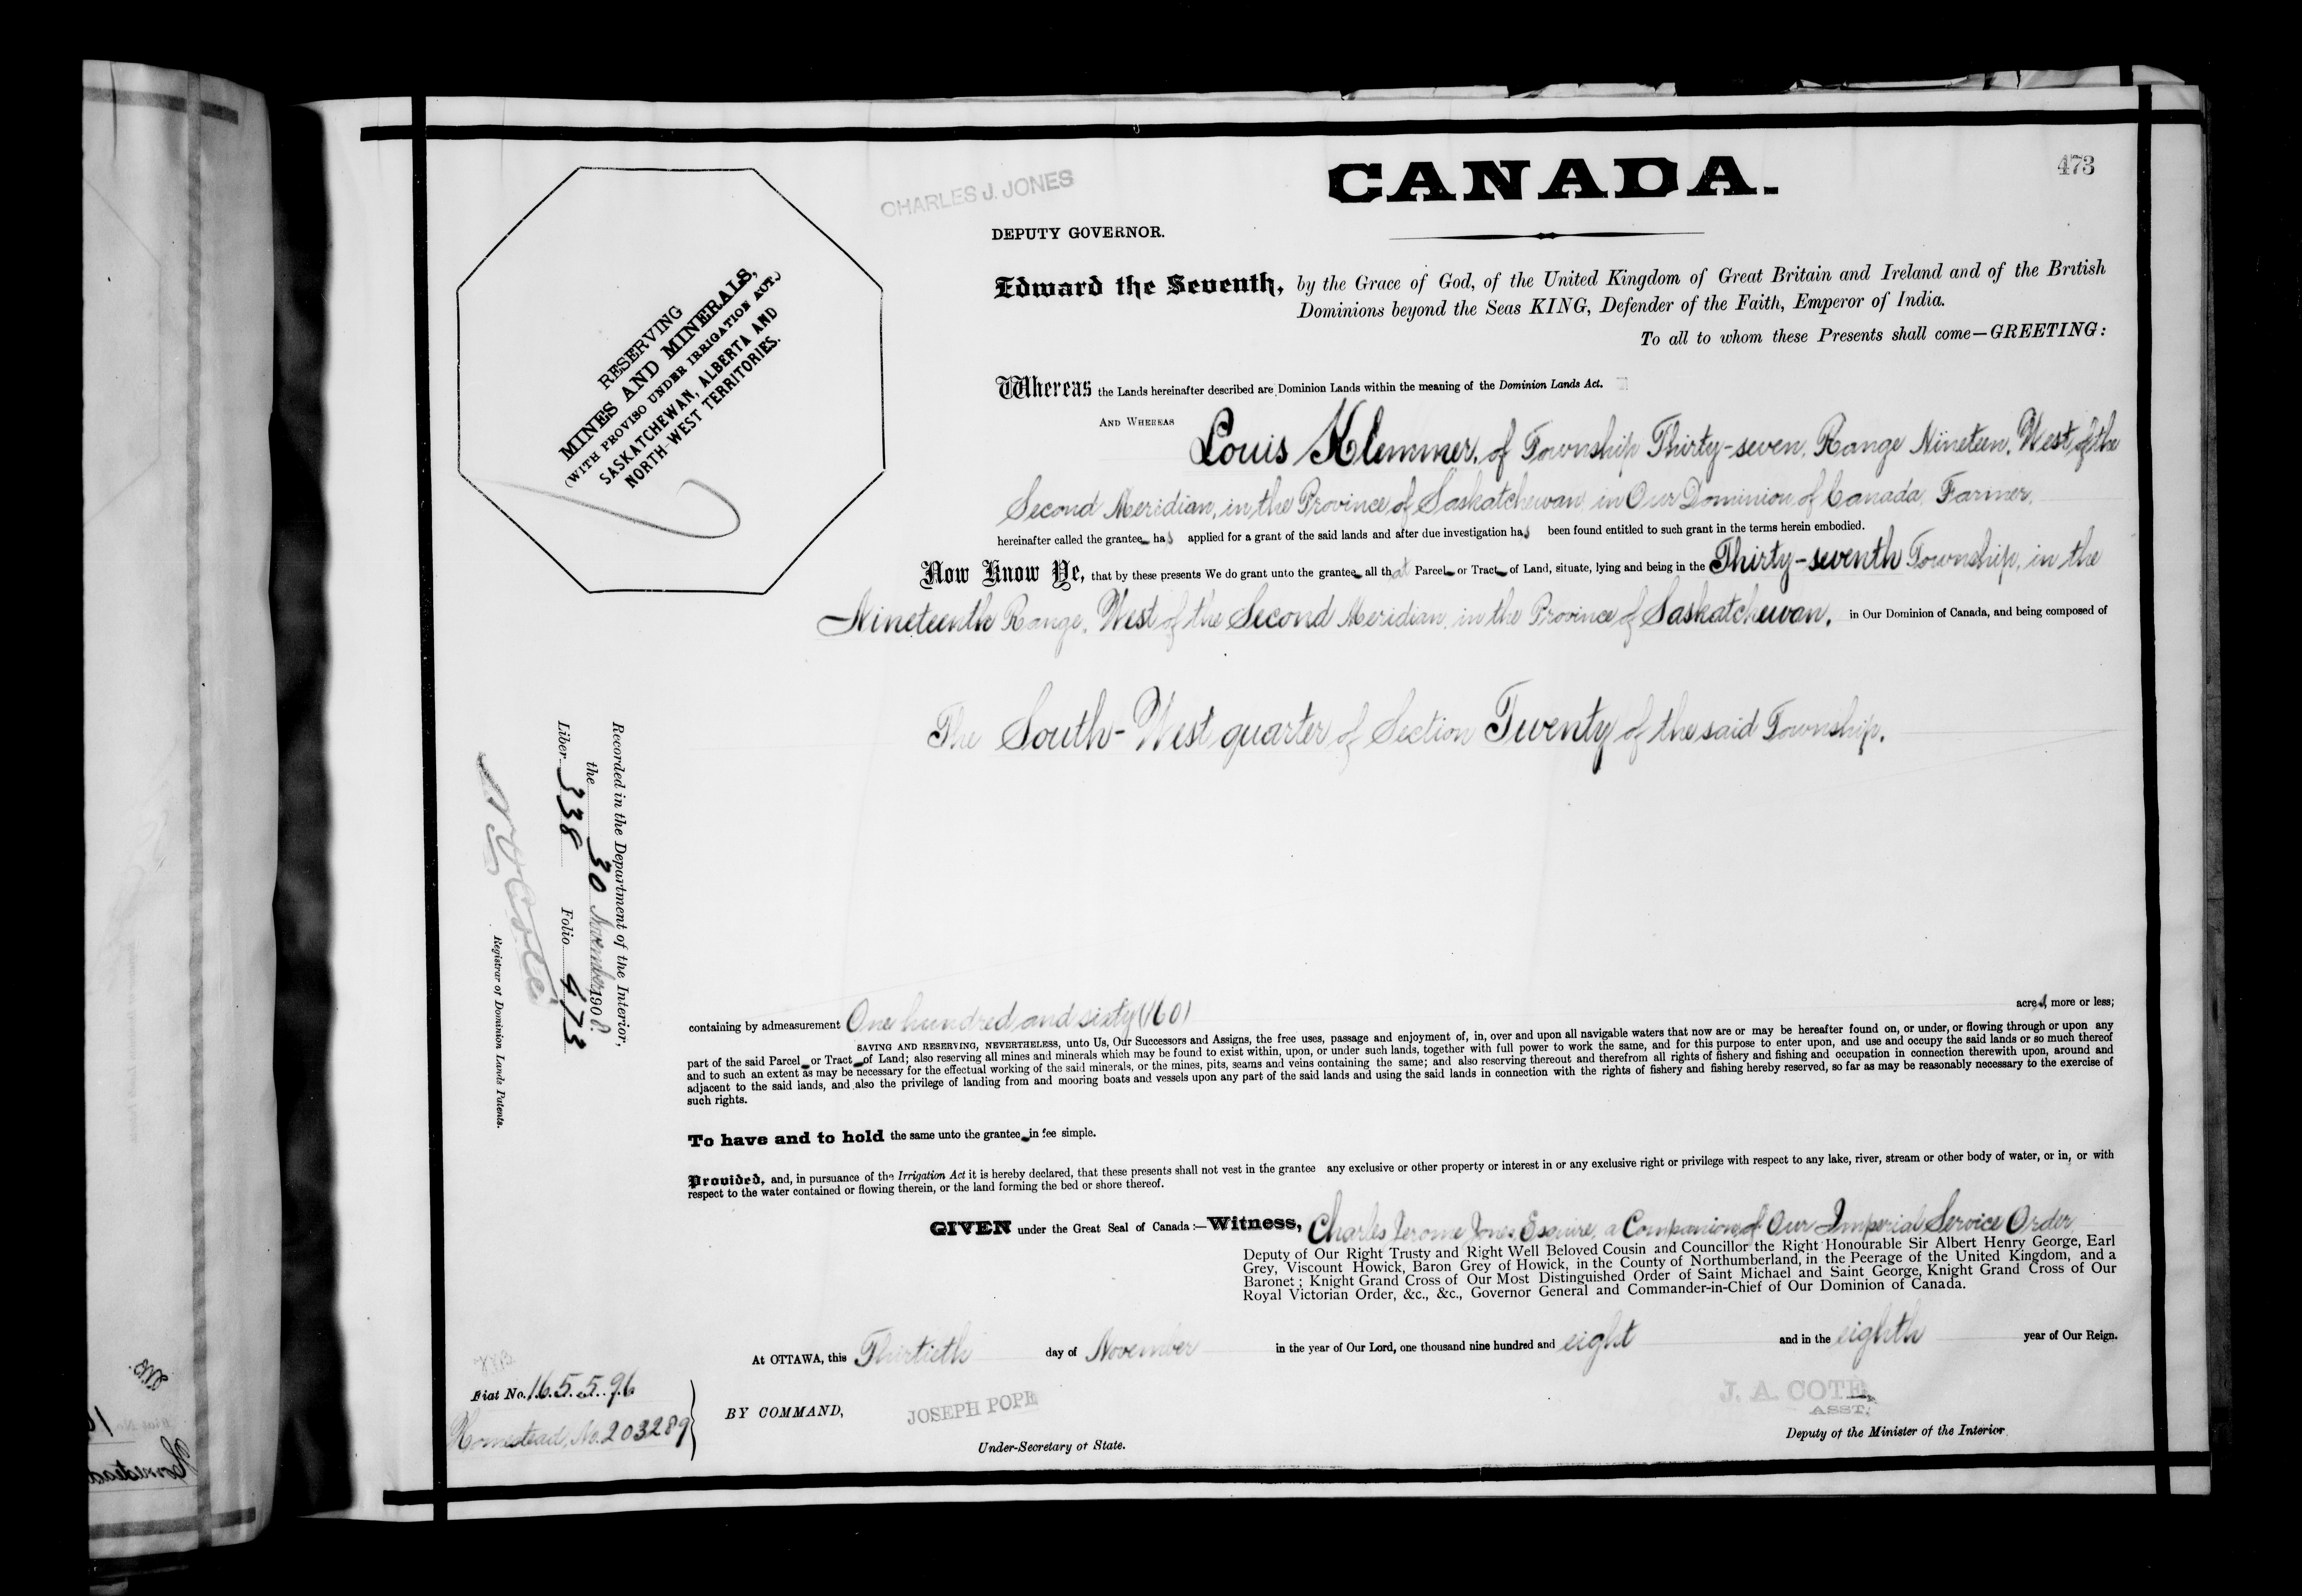 473
CANADA.
CHARLES J. JONES
DEPUTY GOVERNOR.
RESERVING
MINES AND MINERALS,
(WITH PROVISO UNDER IRRIGATION ACT.)
SASKATCHEWAN, ALBERTA AND
NORTH-WEST TERRITORIES.
Edward the Seventh, by the Grace of God, of the United Kingdom of Great Britain and Ireland and of the British
Dominions beyond the Seas KING, Defender of the Faith, Emperor of India.
To all to whom these Presents shall come—GREETING:
Whereas the Lands hereinafter described are Dominion Lands within the meaning of the Dominion Lands Act.
AND WHEREAS Louis Klemmer, of Township Thirty-seven, Range Nineteen, West of the
Second Meridian, in the Province of Saskatchewan in Our Dominion of Canada, Farmer,
hereinafter called the grantee has applied for a grant of the said lands and after due investigation has been found entitled to such grant in the terms herein embodied.
Now Know Ye, that by these presents We do grant unto the grantee all that Parcel or Tract of Land, situate, lying and being in the Thirty-seventh Township, in the
Nineteenth Range, West of the Second Meridian, in the Province of Saskatchewan, in Our Dominion of Canada, and being composed of
The South-West quarter of Section Twenty of the said Township.
Recorded in the Department of the Interior,
the 30 November 1908.
Liber 338 Folio 473
Registrar of Dominion Lands Patents.
containing by admeasurement One hundred and sixty (160) acres, more or less;
SAVING AND RESERVING, NEVERTHELESS, unto Us, Our Successors and Assigns, the free uses, passage and enjoyment of, in, over and upon all navigable waters that now are or may be hereafter found on, or under, or flowing through or upon any
part of the said Parcel or Tract of Land; also reserving all mines and minerals which may be found to exist within, upon, or under such lands, together with full power to work the same, and for this purpose to enter upon, and use and occupy the said lands or so much thereof
and to such an extent as may be necessary for the effectual working of the said minerals, or the mines, pits, seams and veins containing the same; and also reserving thereout and therefrom all rights of fishery and fishing and occupation in connection therewith upon, around and
adjacent to the said lands, and also the privilege of landing from and mooring boats and vessels upon any part of the said lands and using the said lands in connection with the rights of fishery and fishing hereby reserved, so far as may be reasonably necessary to the exercise of
such rights.
To have and to hold the same unto the grantee in fee simple.
Provided, and, in pursuance of the Irrigation Act it is hereby declared, that these presents shall not vest in the grantee any exclusive or other property or interest in or any exclusive right or privilege with respect to any lake, river, stream or other body of water, or in, or with
respect to the water contained or flowing therein, or the land forming the bed or shore thereof.
GIVEN under the Great Seal of Canada:—Witness, Charles Jerome Jones, Esquire, a Companion of Our Imperial Service Order
Deputy of Our Right Trusty and Right Well Beloved Cousin and Councillor the Right Honourable Sir Albert Henry George, Earl
Grey, Viscount Howick, Baron Grey of Howick, in the County of Northumberland, in the Peerage of the United Kingdom, and a
Baronet; Knight Grand Cross of Our Most Distinguished Order of Saint Michael and Saint George, Knight Grand Cross of Our
Royal Victorian Order, &c., &c., Governor General and Commander-in-Chief of Our Dominion of Canada.
At OTTAWA, this Thirtieth day of November in the year of Our Lord, one thousand nine hundred and eight and in the eighth year of Our Reign.
Fiat No. 165596
Homestead, No. 203289
BY COMMAND,
JOSEPH POPE
Under-Secretary of State.
J. A. COTE,
ASST.
Deputy of the Minister of the Interior